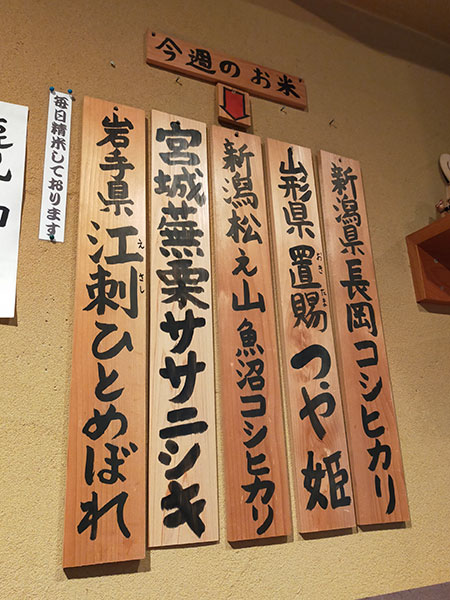 今週のお米
新潟県長岡コシヒカリ
山形県置賜つや姫
おきたま
新潟松え山魚沼コシヒカリ
宮城蕪栗ササニシキ
岩手県江刺ひとめぼれ
えさし
毎日精米しております